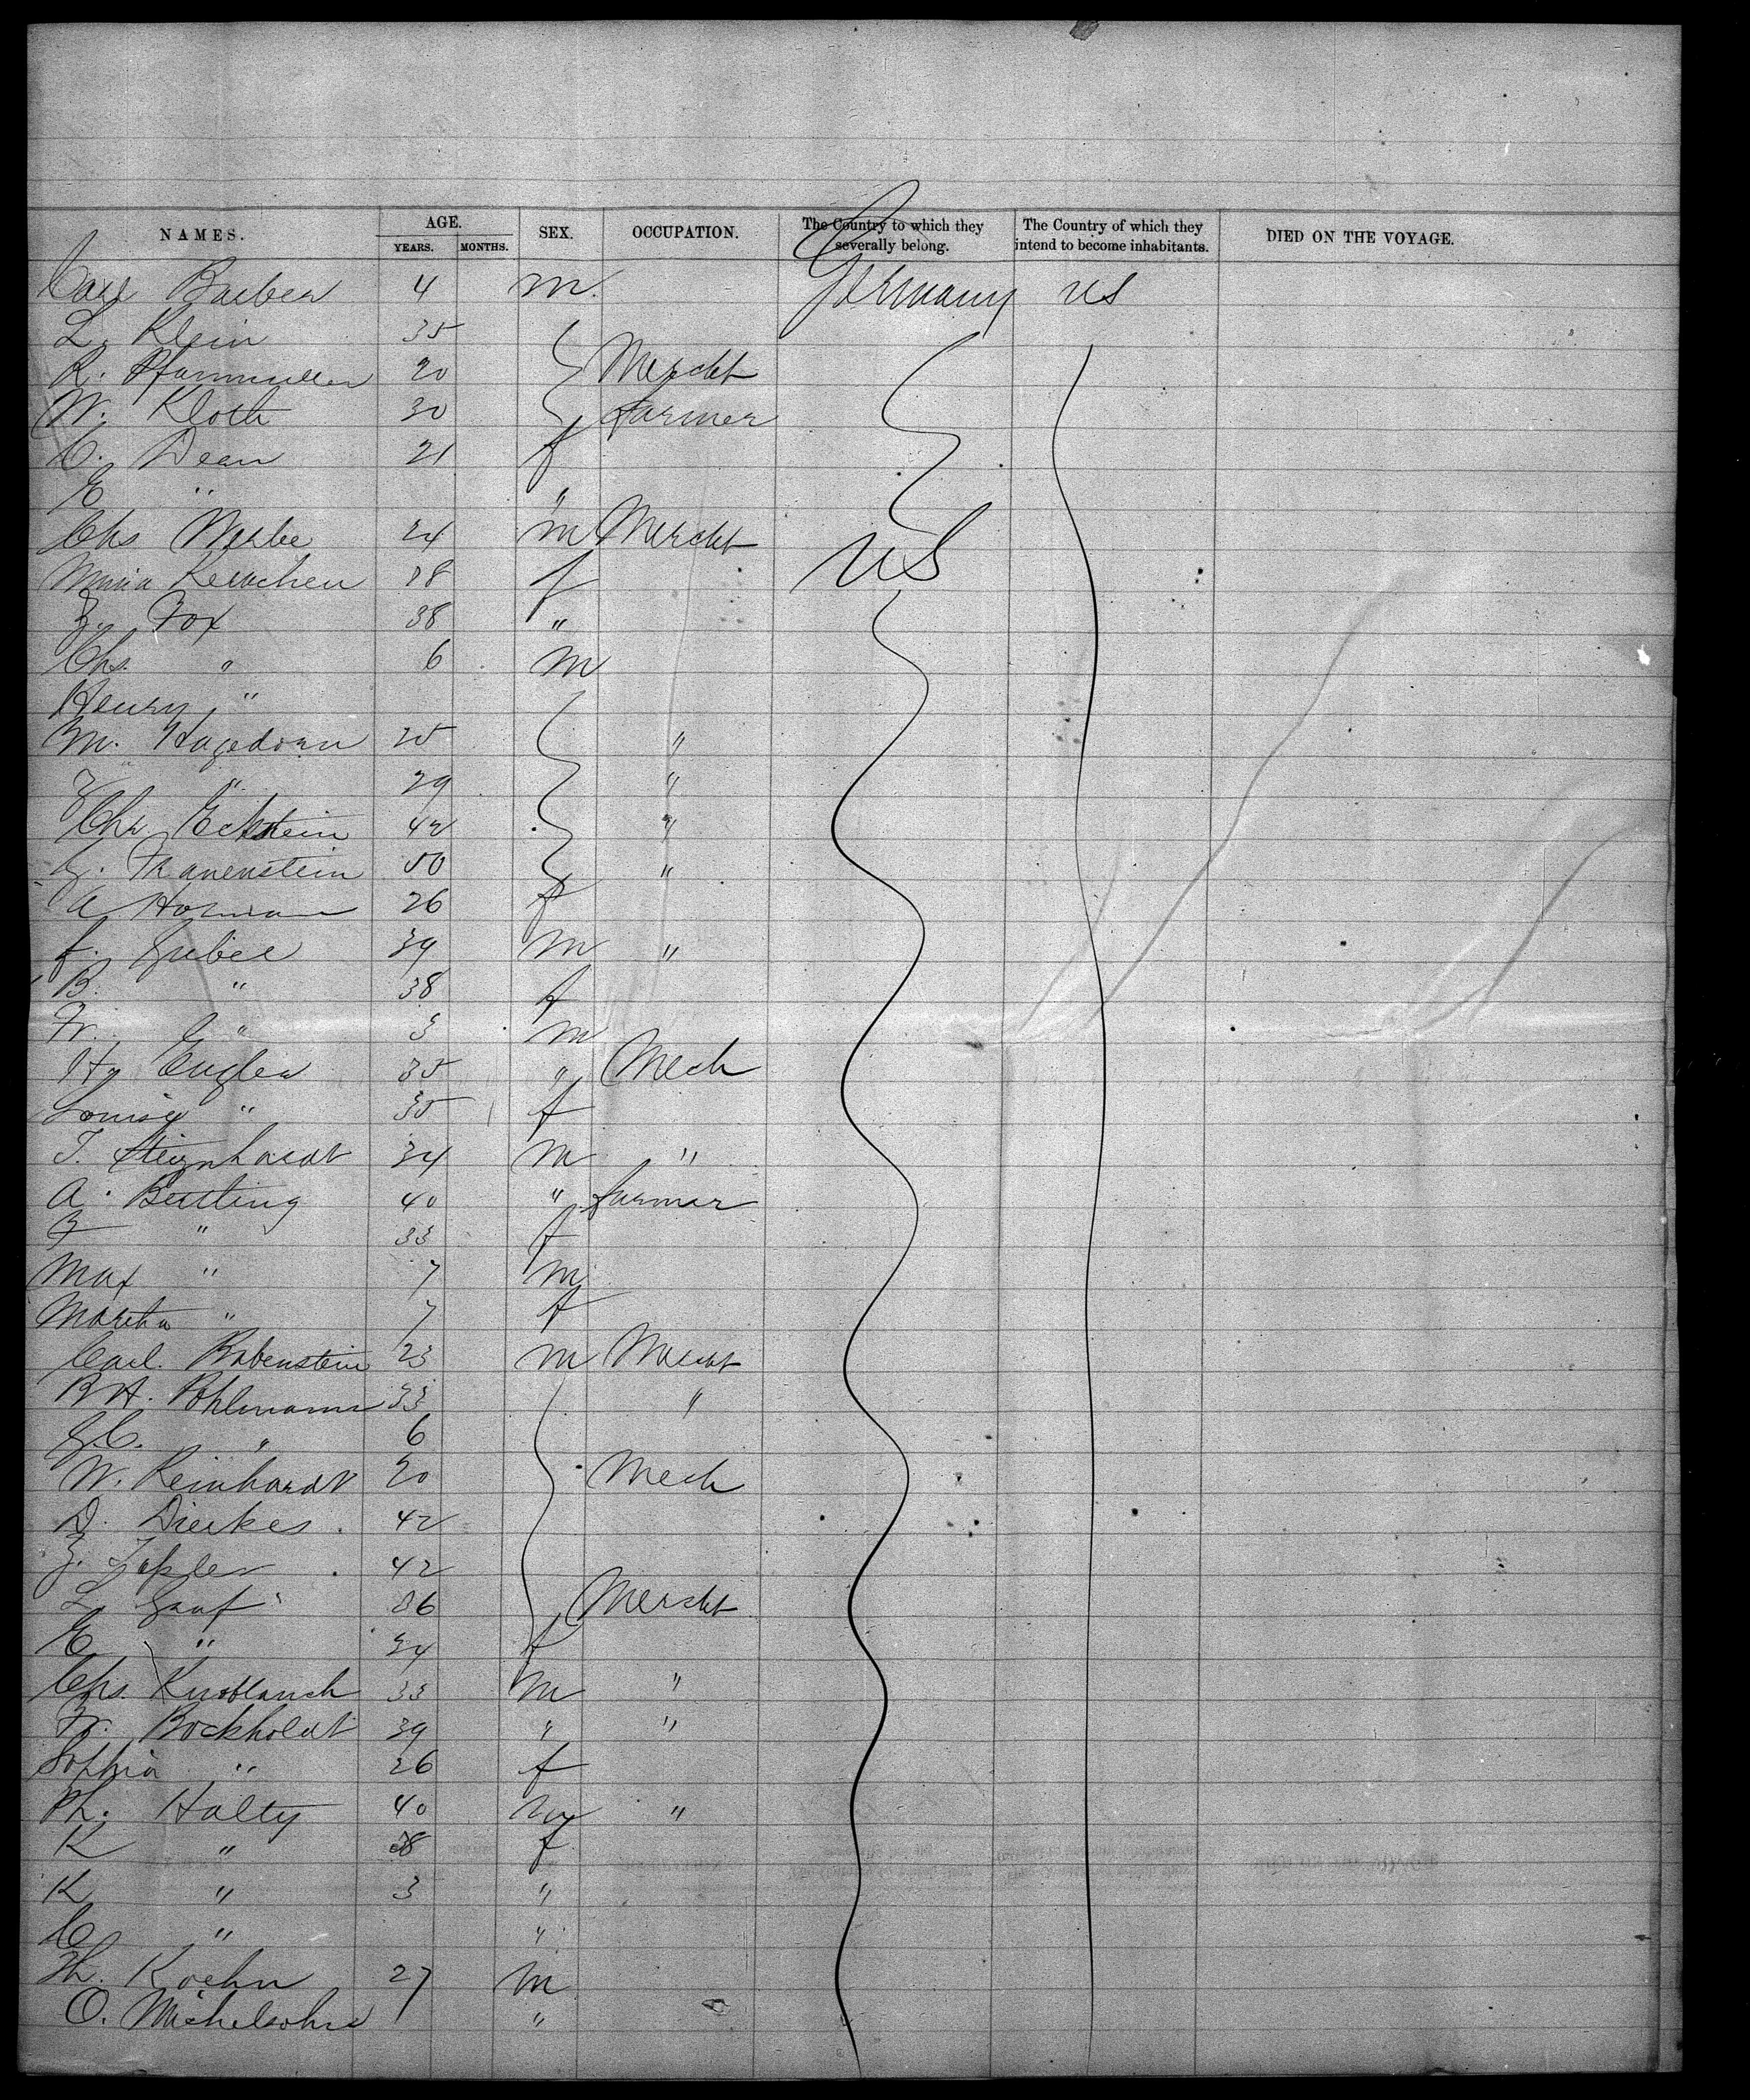 NAMES. AGE. YEARS. MONTHS. SEX. OCCUPATION. The Country to which they severally belong. The Country of which they intend to become inhabitants. DIED ON THE VOYAGE.
Carl Barber 4 m. Germany US
L. Klein 35
R. Pfarrmuller 20 Mercht
W. Kloth 30 farmer
C. Dean 21 f
E " "
Chs 24 m Mercht US
Maria f
Z. Fox 38 "
Chs. " 6 m
Henry "
M. Hagedorn 25 "
" 29 "
Chr Eckstein 42 "
50 "
A 26 f
f. Griebel 39 m "
B. " 38 f
Fr. " 3 m
Hy Engler 35 " Mech
Louise " 35 f
T. Steignhardt 34 m "
A. Beuting 40 " farmer
" 33 f
Max " 7 m
Martha " 7 f
Carl. Rabenstein 23 m Mercht
B H. Pohlmann 33 "
G.C. " 6
W. Reinhardt 20 Mech
D. Dierkes. 42
Z. 42
L. Graf 36 Mercht
E. " 34 f
Chs. Knoblauch 33 m "
Fr. Bockholdt 39 " "
Sophia " 26 f
Ph. Halty 40 m "
K " 38 f
K " 3 "
C " "
Th. Koehn 27 m
O. Michelsohn "